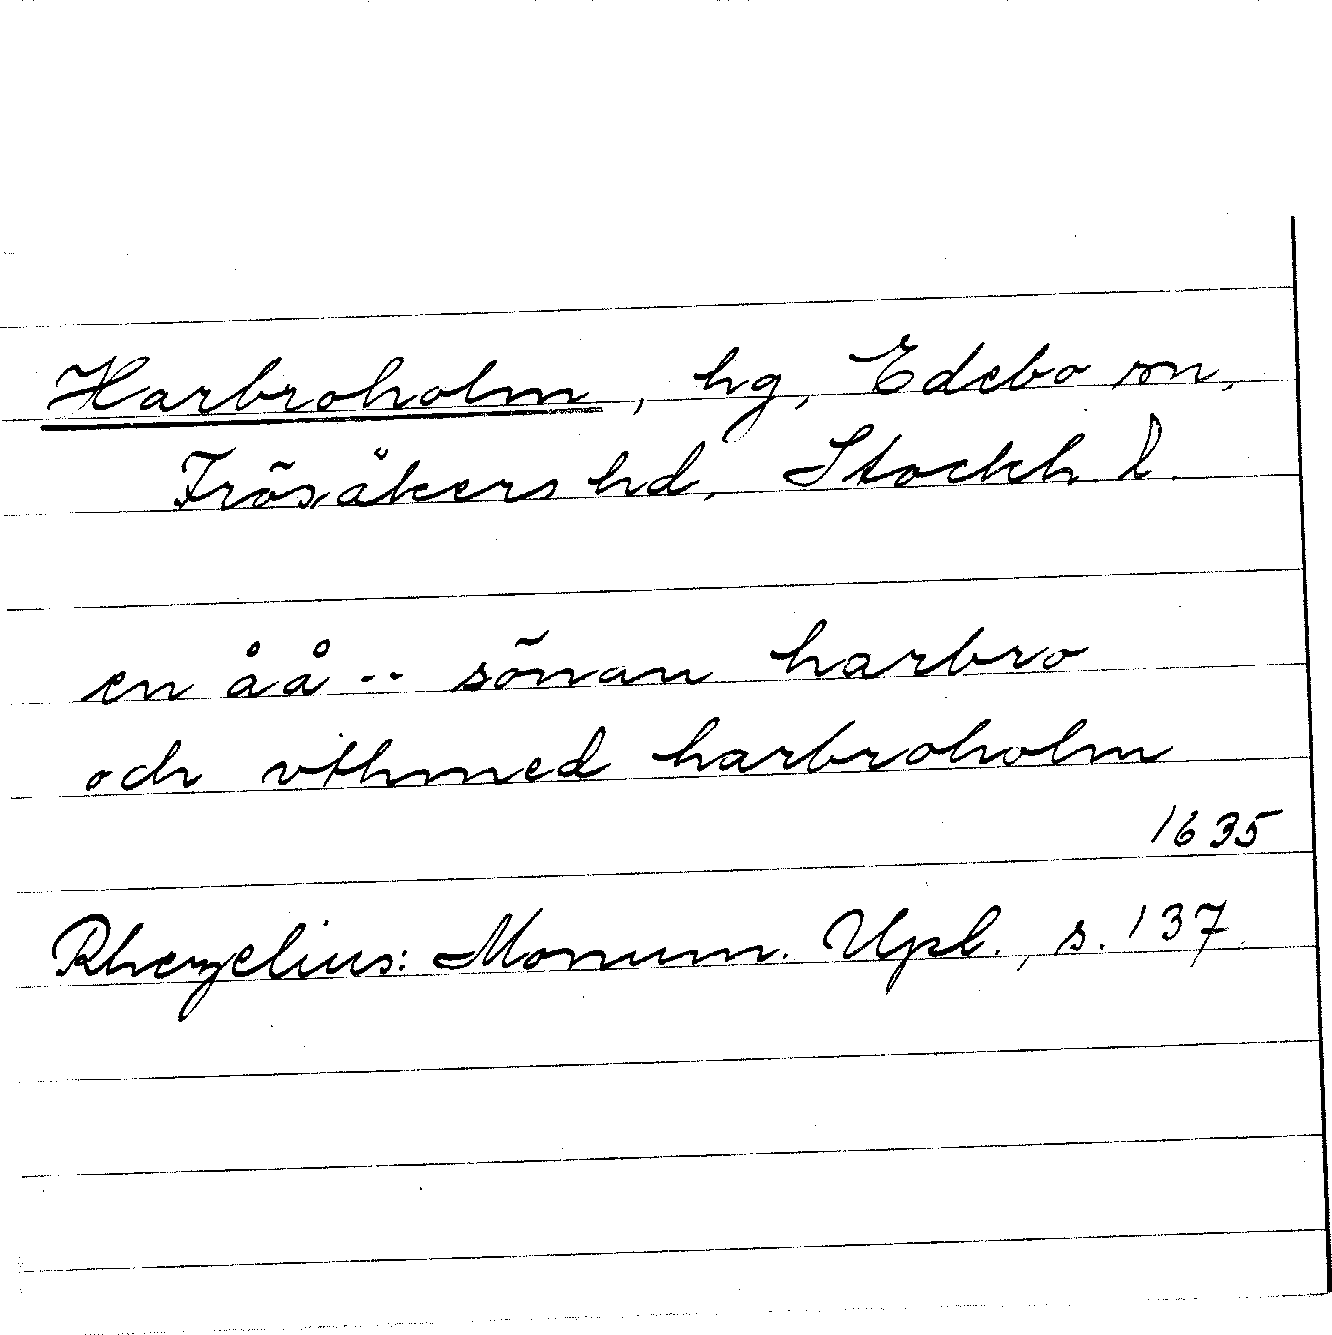 Harbroholm, hg, Edebo sn,
Frösåkers hd, Stockh l.
en åå -- sönan harbro
och vthmed harbroholm
1635
Rhezelius: Monum. Upl., s. 137